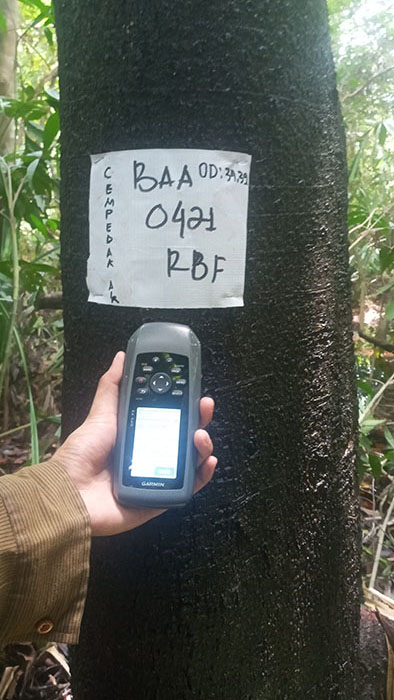 CEMPEDAK AIR
BAA OD:39,39
0421
RBF
GARMIN